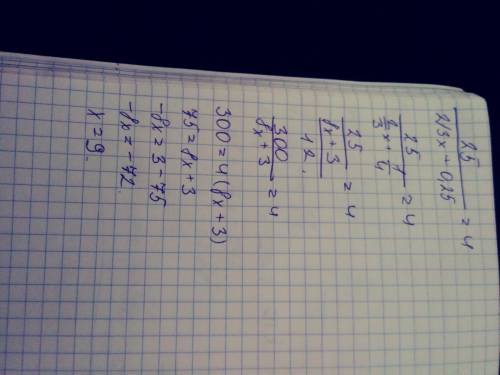 25/(2/3x+0,25) = 4
25/(2/3 x + 1/4) = 4
25/((8x+3)/12) = 4
300/(8x+3) = 4
300 = 4(8x+3)
75 = 8x+3
-8x = 3-75
-8x = -72.
x = 9.